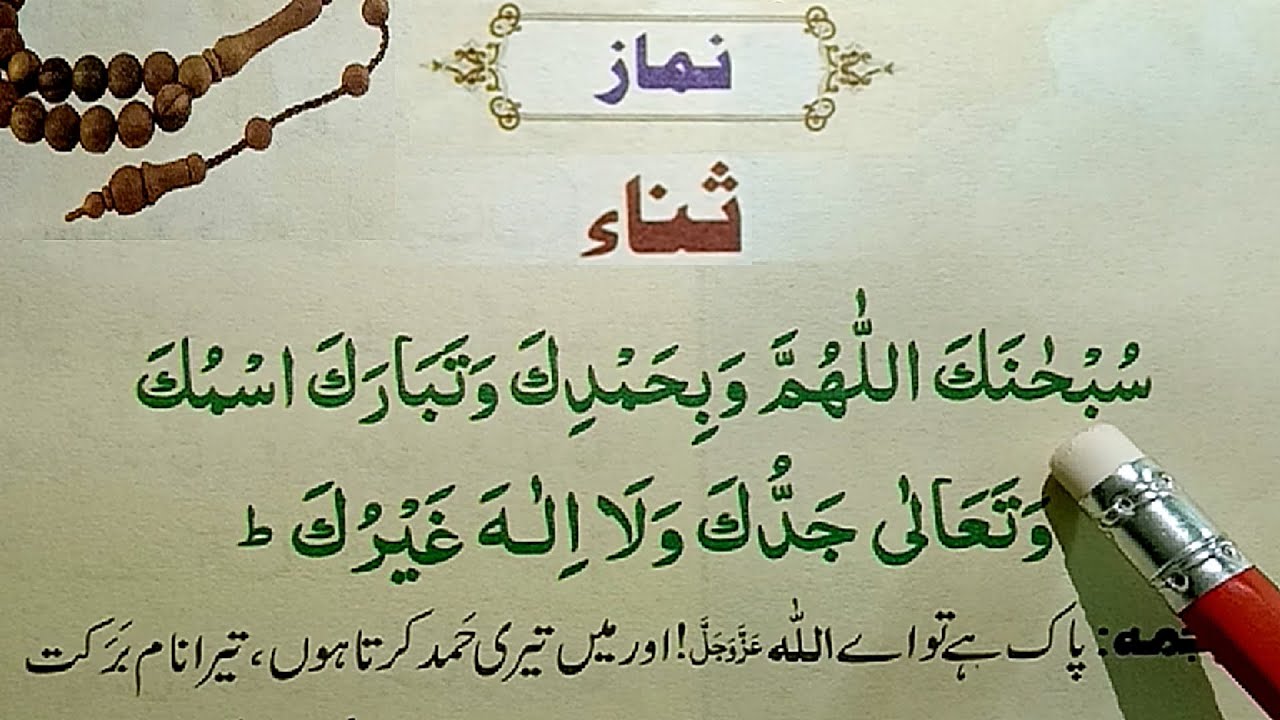 نماز
ثناء
سُبْحٰنَكَ اللّٰهُمَّ وَبِحَمْدِكَ وَتَبَارَكَ اسْمُكَ
وَتَعَالٰى جَدُّكَ وَلَا اِلٰهَ غَيْرُكَ ط
پاک ہے تو اے اللّٰه عَزَّوَجَلَّ! اور میں تیری حَمد کرتا ہوں، تیرا نام بَرَکت